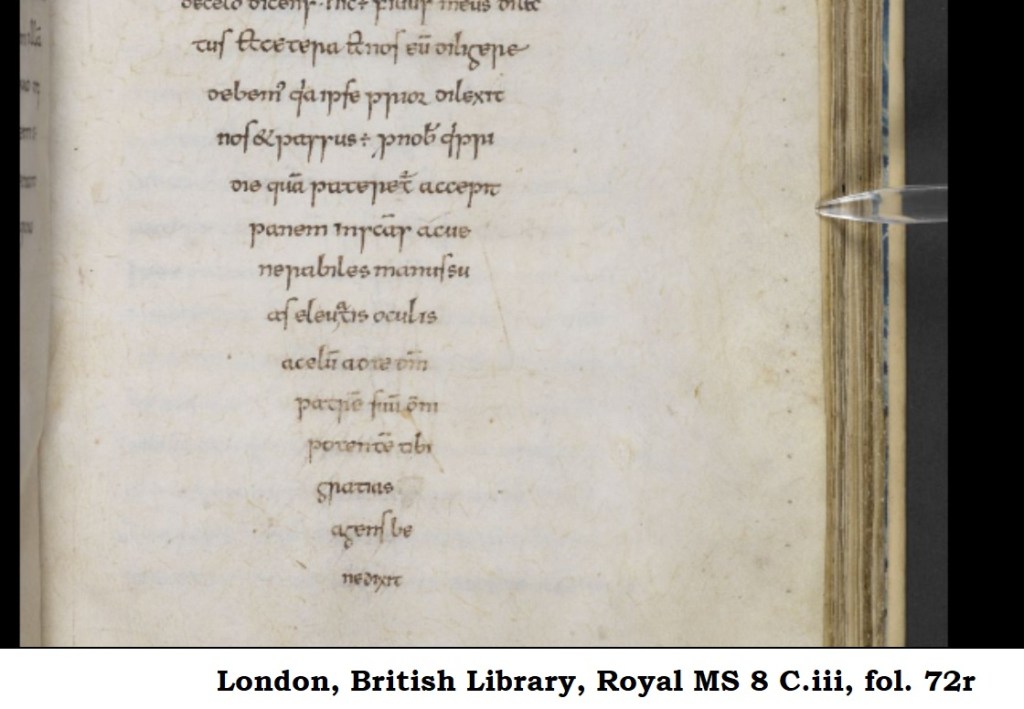 decelo dicens · hic ÷ filius meus dilec
tus & cetera & nos eū diligere
debem᾽ q̄a ipse prior dilexit
nos & passus ÷ p nob̄ q̄ pri
die quā pateret̄ accepit
panem in sc̄as acue
nerabiles manus su
as eleuatis oculis
acelū adte dm̄
patrē suū om̄i
potentē tibi
gratias
agens be
nedixit
London, British Library, Royal MS 8 C.iii, fol. 72r